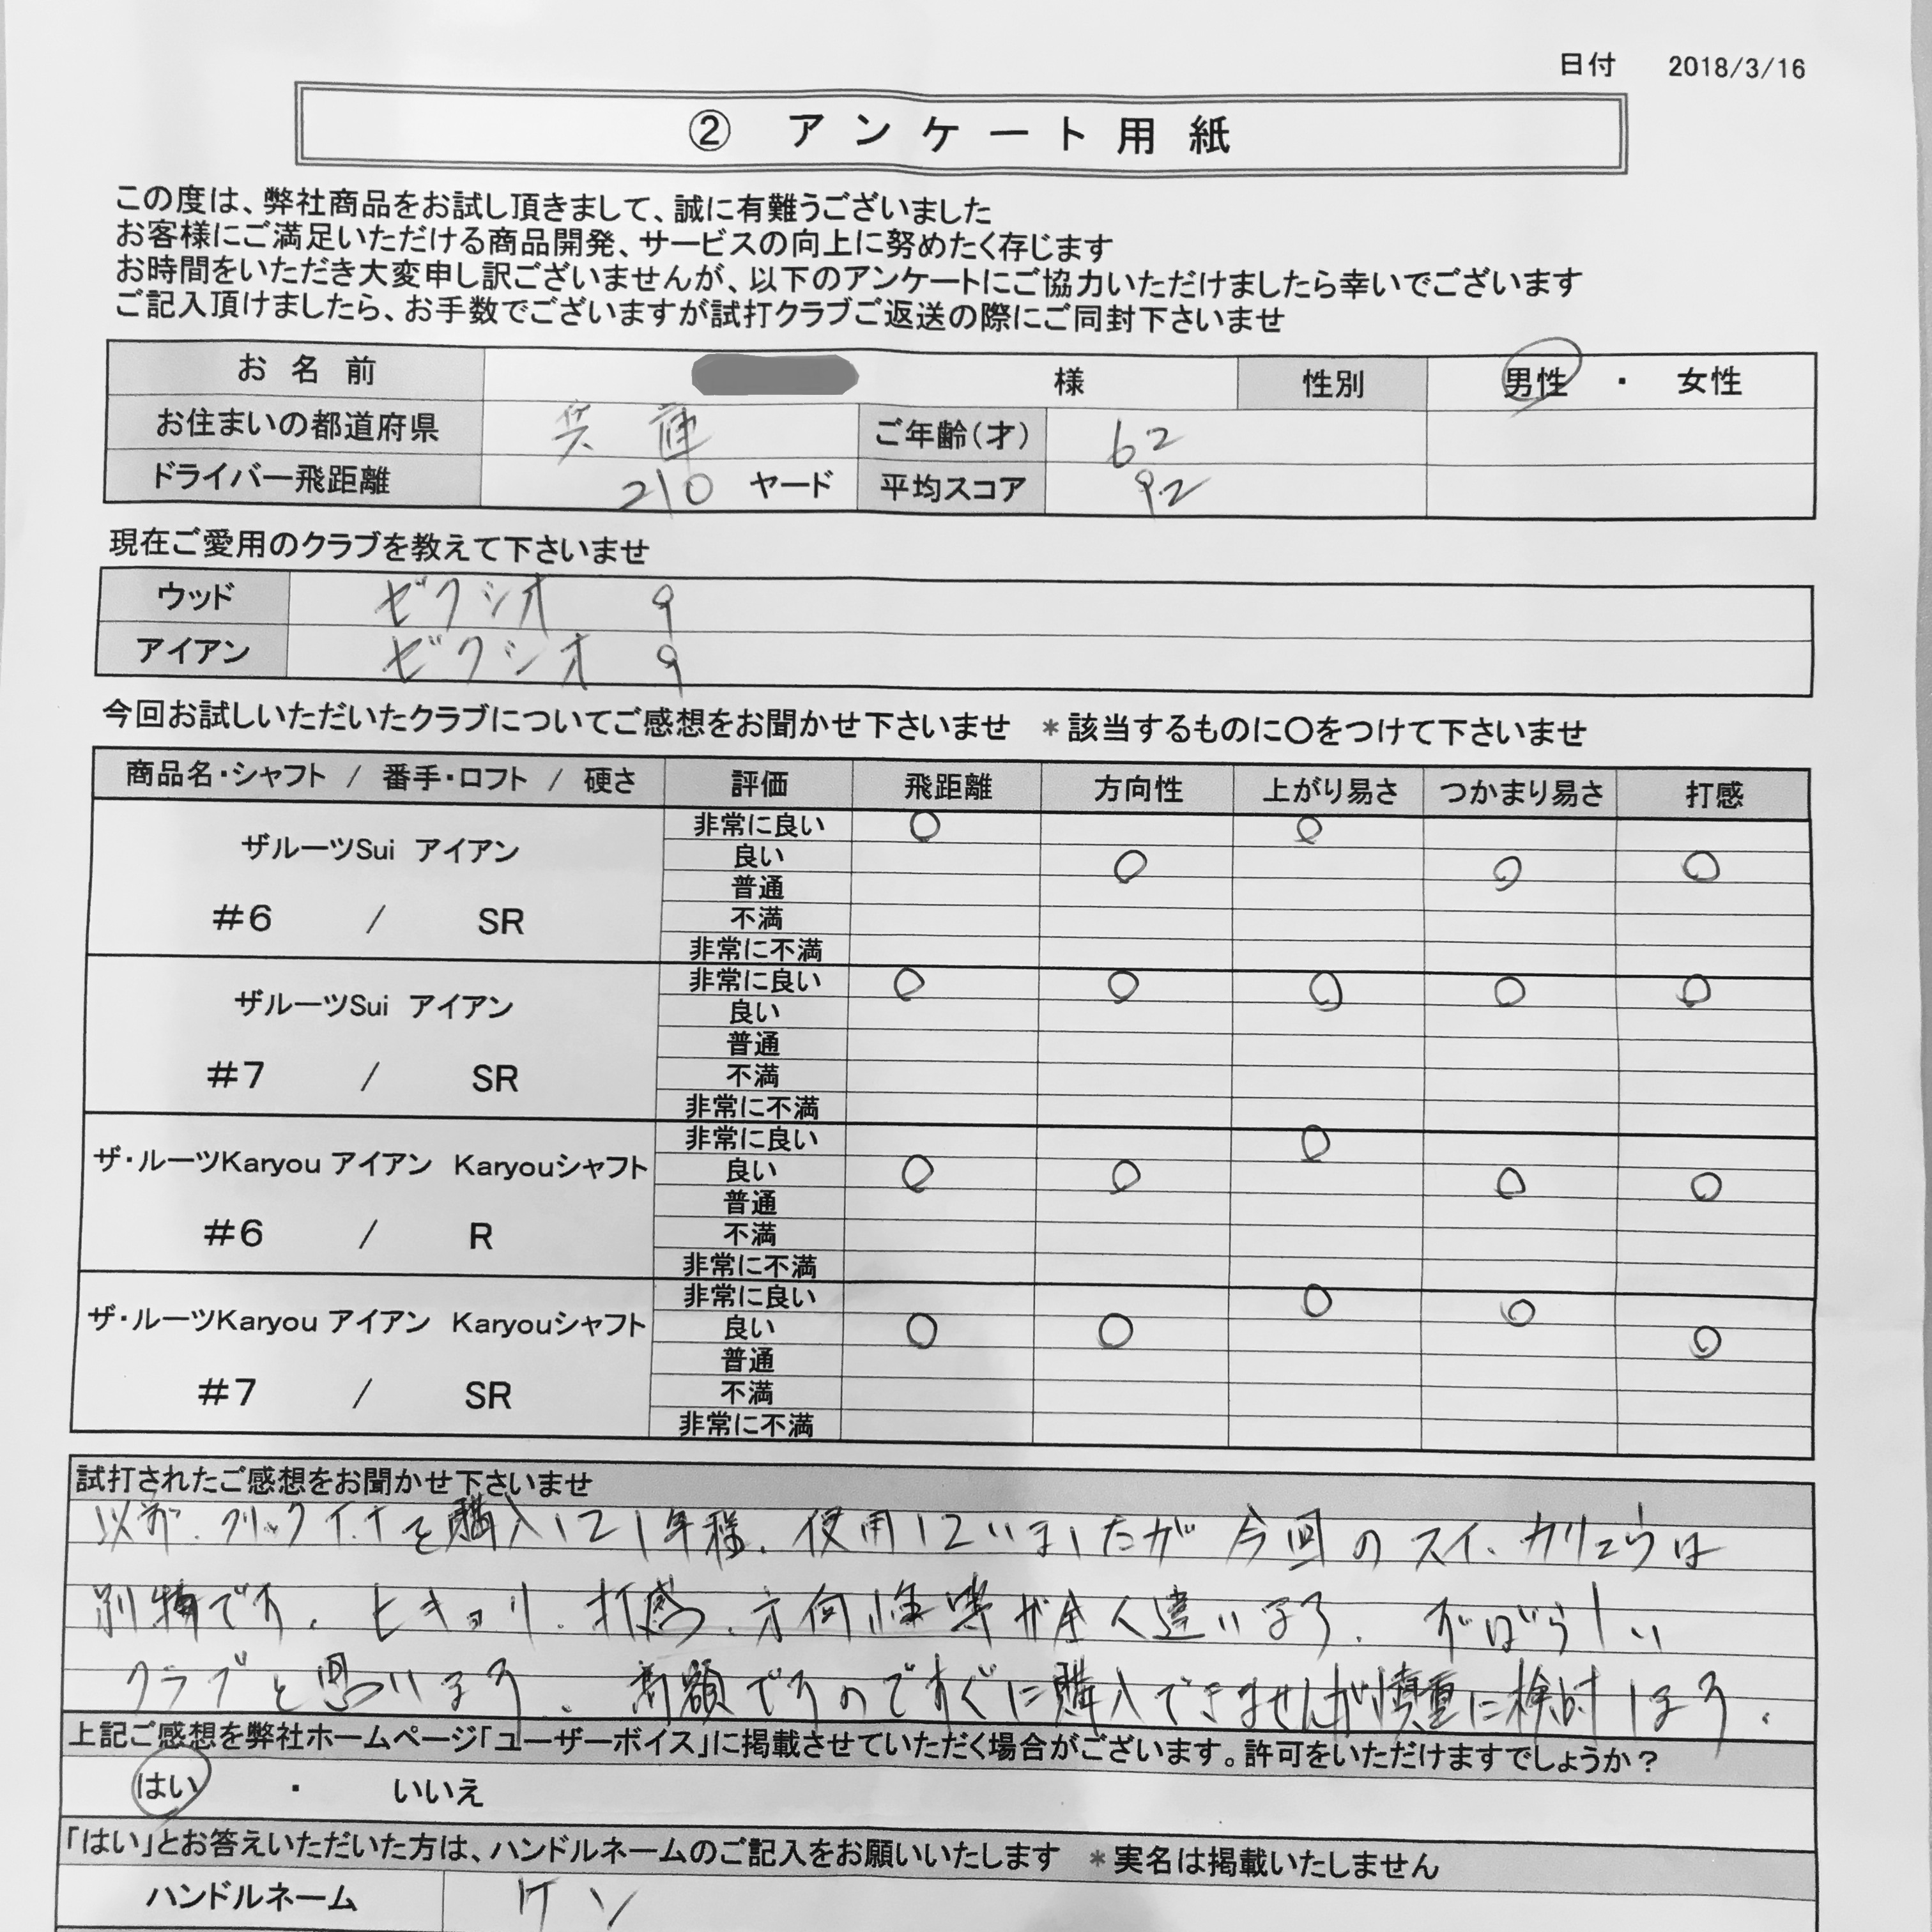 日付 2018/3/16
② アンケート用紙
この度は、弊社商品をお試し頂きまして、誠に有難うございました
お客様にご満足いただける商品開発、サービスの向上に努めたく存じます
お時間をいただき大変申し訳ございませんが、以下のアンケートにご協力いただけましたら幸いでございます
ご記入頂けましたら、お手数でございますが試打クラブご返送の際にご同封下さいませ
お名前 様 性別 男性 ・ 女性
お住まいの都道府県 兵庫 ご年齢(才) 62
ドライバー飛距離 210 ヤード 平均スコア 92
現在ご愛用のクラブを教えて下さいませ
ウッド ゼクシオ 9
アイアン ゼクシオ 9
今回お試しいただいたクラブについてご感想をお聞かせ下さいませ *該当するものに〇をつけて下さいませ
商品名・シャフト / 番手・ロフト / 硬さ 評価 飛距離 方向性 上がり易さ つかまり易さ 打感
ザルーツSui アイアン
#6 / SR
非常に良い 〇 〇
良い 〇 〇 〇
普通
不満
非常に不満
ザルーツSui アイアン
#7 / SR
非常に良い 〇 〇 〇 〇 〇
良い
普通
不満
非常に不満
ザ・ルーツKaryou アイアン Karyouシャフト
#6 / R
非常に良い 〇
良い 〇 〇 〇 〇
普通
不満
非常に不満
ザ・ルーツKaryou アイアン Karyouシャフト
#7 / SR
非常に良い 〇 〇
良い 〇 〇 〇
普通
不満
非常に不満
試打されたご感想をお聞かせ下さいませ
以前、を購入して1年程、使用していましたが今回のスイ、カリュウは
別物です。ヒキョリ、打感、方向性等が全く違います。すばらしい
クラブと思います。高額ですのですぐに購入できませんが慎重に検討します。
上記ご感想を弊社ホームページ「ユーザーボイス」に掲載させていただく場合がございます。許可をいただけますでしょうか?
はい ・ いいえ
「はい」とお答えいただいた方は、ハンドルネームのご記入をお願いいたします *実名は掲載いたしません
ハンドルネーム ケン